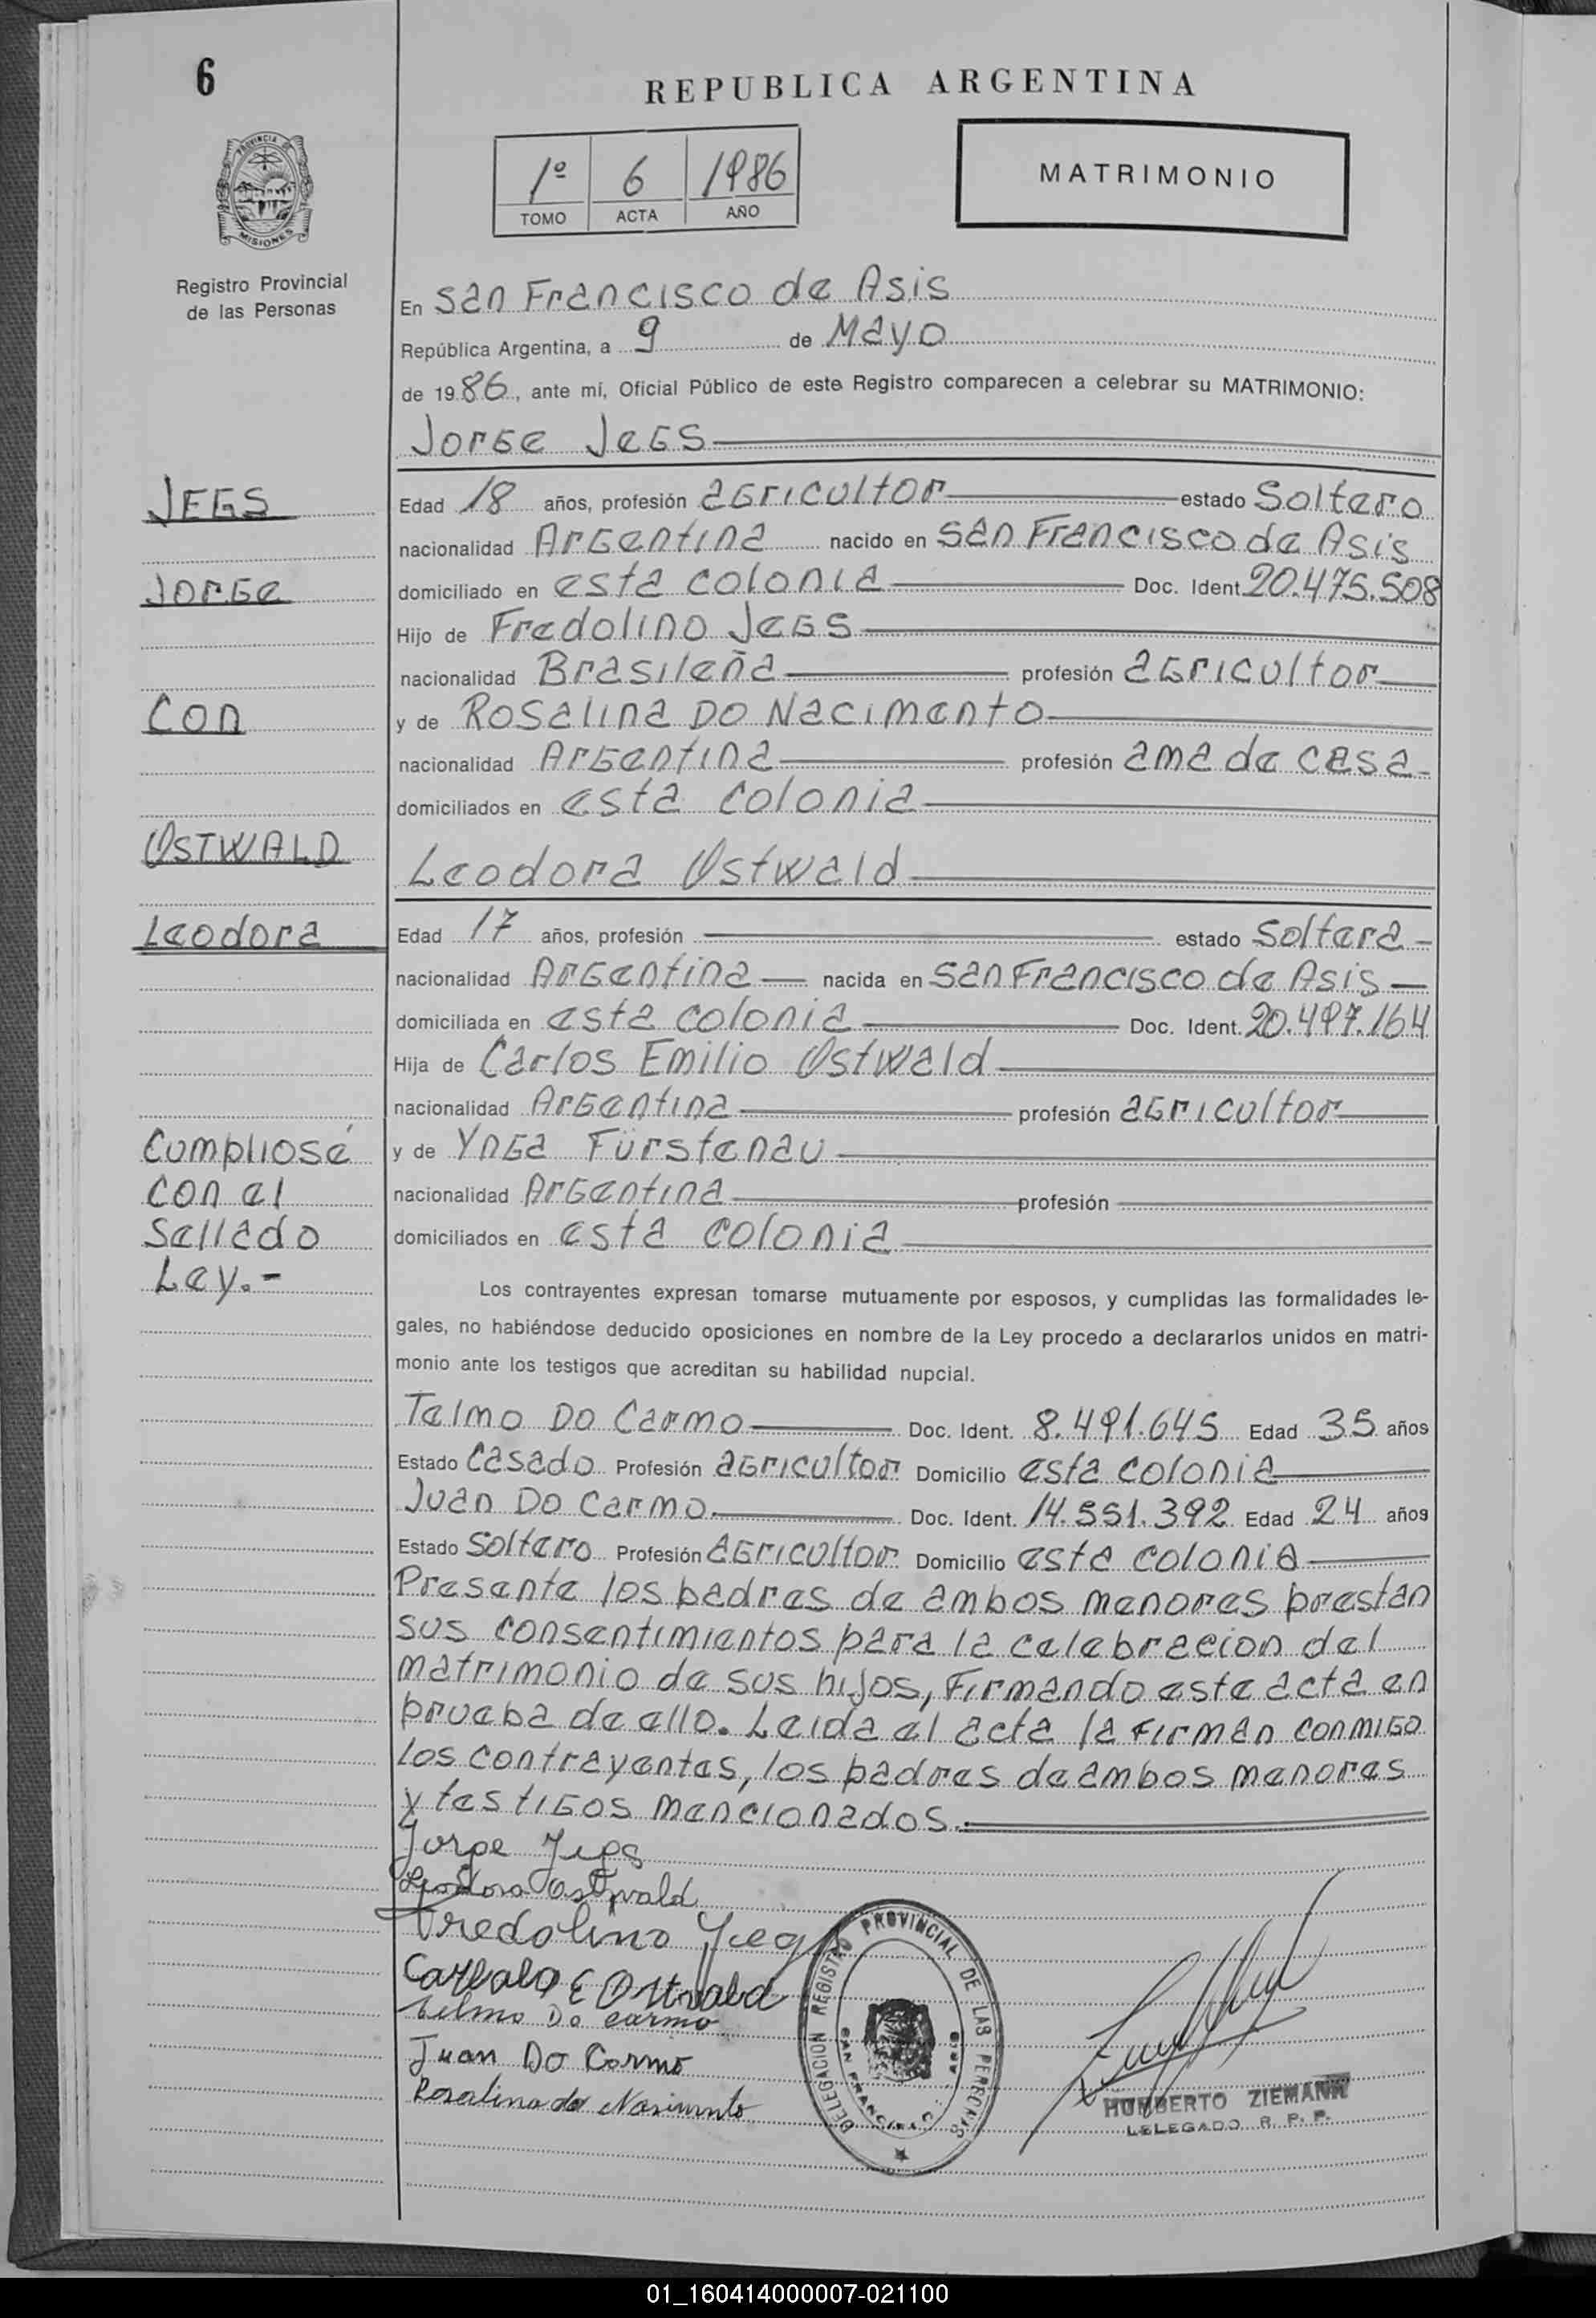 6
REPUBLICA ARGENTINA
PROVINCIA DE
MISIONES
1º 6 1986
TOMO ACTA AÑO
MATRIMONIO
Registro Provincial
de las Personas
En San Francisco de Asis
República Argentina, a 9 de Mayo
de 1986, ante mí, Oficial Público de este Registro comparecen a celebrar su MATRIMONIO:
Jorge Jegs
JEGS
Edad 18 años, profesión agricultor estado Soltero
nacionalidad Argentina nacido en San Francisco de Asis
Jorge
domiciliado en esta colonia Doc. Ident. 20.475.508
Hijo de Fredolino Jegs
nacionalidad Brasileña profesión agricultor
Con
y de Rosalina Do Nacimento
nacionalidad Argentina profesión ama de casa
domiciliados en esta colonia
OSTWALD
Leodora Ostwald
Leodora
Edad 17 años, profesión estado Soltera
nacionalidad Argentina nacida en San Francisco de Asis
domiciliada en esta colonia Doc. Ident. 20.497.164
Hija de Carlos Emilio Ostwald
nacionalidad Argentina profesión agricultor
Cumpliosé
y de Ynga Fürstenau
con el
nacionalidad Argentina profesión
Sellado
domiciliados en esta colonia
Ley.-
Los contrayentes expresan tomarse mutuamente por esposos, y cumplidas las formalidades le-
gales, no habiéndose deducido oposiciones en nombre de la Ley procedo a declararlos unidos en matri-
monio ante los testigos que acreditan su habilidad nupcial.
Telmo Do Carmo Doc. Ident. 8.491.645 Edad 35 años
Estado Casado Profesión agricultor Domicilio esta colonia
Juan Do Carmo. Doc. Ident. 14.551.392 Edad 24 años
Estado Soltero Profesión agricultor Domicilio esta colonia
Presente los padres de ambos menores prestan
sus consentimientos para la celebracion del
matrimonio de sus hijos, firmando este acta en
prueba de ello. Leida el acta la firman conmigo
los contrayentes, los padres de ambos menores
y testigos mencionados.
Jorge Jegs
Leodora Ostwald
Fredolino Jegs
E Ostwald
Telmo Do Carmo
Juan Do Carmo
Rosalina do Nasimento
DELEGACION REGISTRO PROVINCIAL DE LAS PERSONAS
SAN FRANCISCO
HUMBERTO ZIEMANN
DELEGADO R. P. P.
01_160414000007-021100